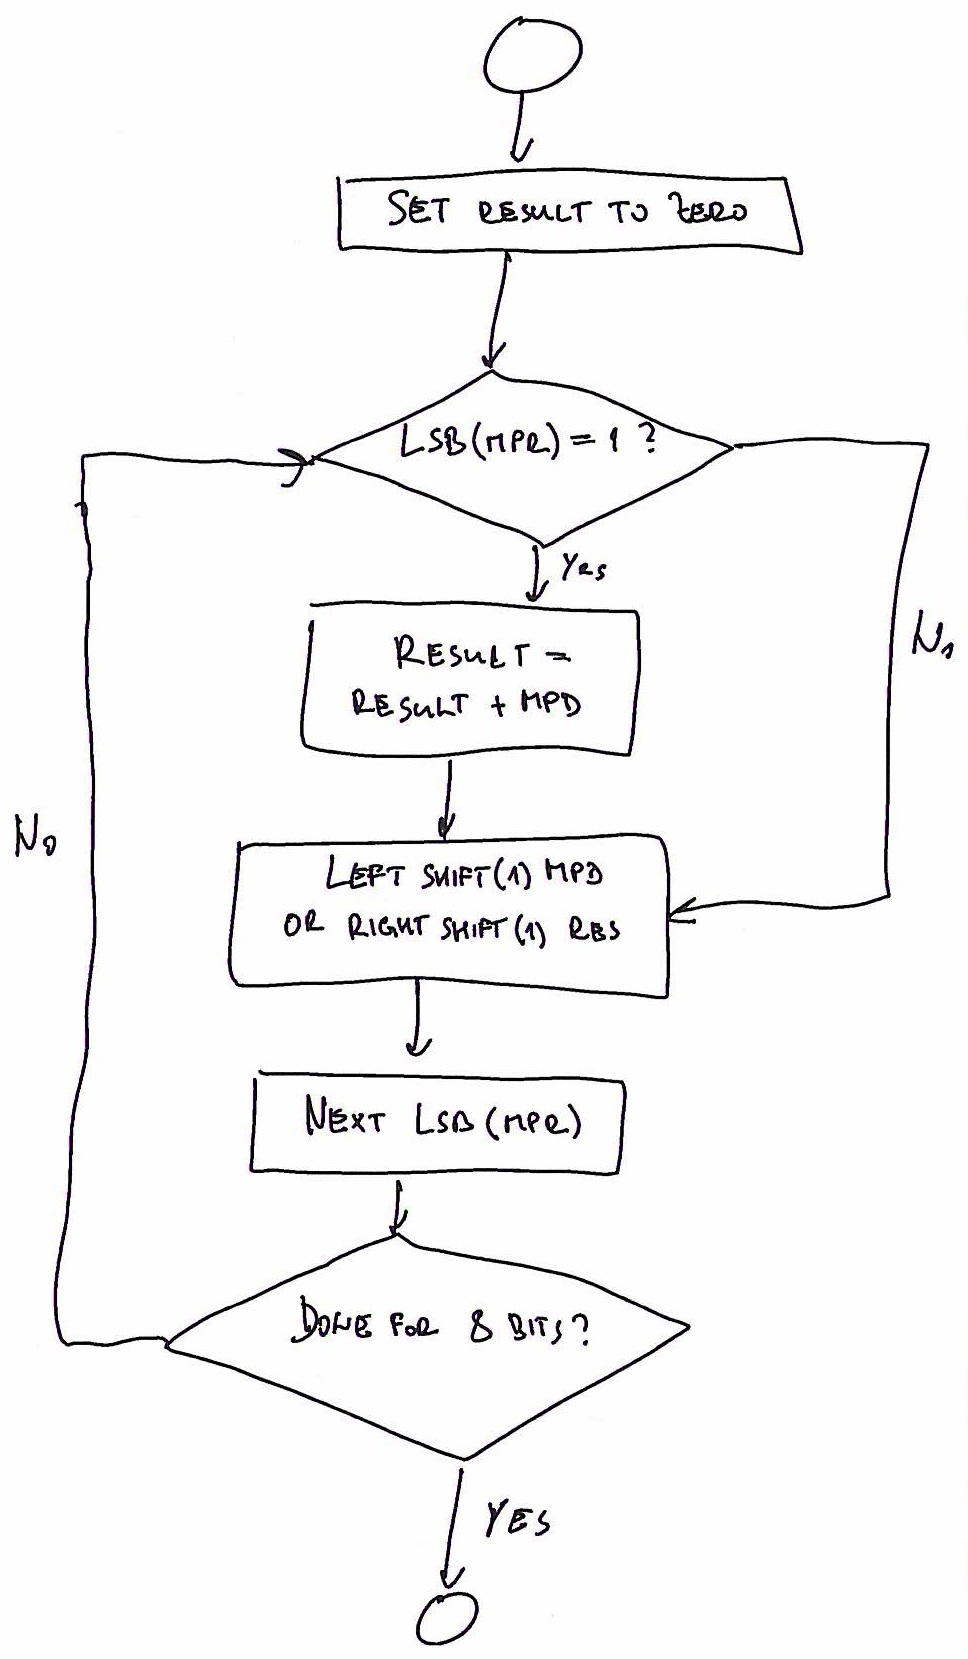 SET RESULT TO ZERO
LSB(MPR) = 1 ?
Yes
No
RESULT =
RESULT + MPD
No
LEFT SHIFT(1) MPD
OR RIGHT SHIFT(1) RES
NEXT LSB (MPR)
DONE FOR 8 BITS?
YES